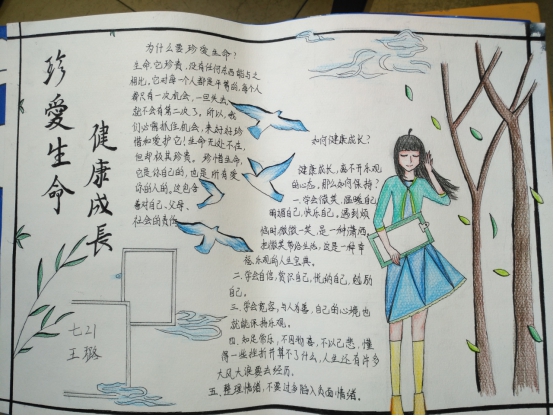 珍愛生命
健康成長
为什么要珍爱生命？
生命，它珍贵，没有任何东西能与之
相比。它对每个人都是平等的，每个人
都只有一次机会，一旦失去，
就不会有第二次了。所以，我
们必需抓住机会，来好好珍
惜和爱护它！生命无处不在，
但却极其珍贵。珍惜生命，
它是你自己的，也是所有爱
你的人的。这包含
着对自己、父母、
社会的责任
如何健康成长？
健康成长，离不开乐观
的心态。那么如何保持？
一.学会微笑，温暖自己
自己，快乐自己。遇到烦
恼时微微一笑，是一种潇洒。
把微笑带给生活，这是一种幸
福、乐观的人生宝典。
二.学会自信，赏识自己，悦纳自己，勉励
自己。
三.学会宽容，与人为善，自己的心境也
就能保持乐观。
四.知足常乐，不因物喜，不以己悲，懂
得一些挫折并算不了什么，人生还有许多
大风大浪要去经历。
五.整理情绪，不要过多陷入负面情绪。
七21
王